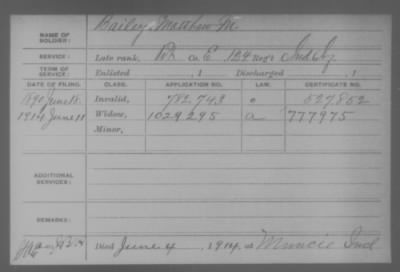 Bailey, Matthew M.
NAME OF SOLDIER:
SERVICE: Late rank, Pvt Co. E, 124 Reg't Ind Inf
TERM OF SERVICE: Enlisted , 1 Discharged , 1
DATE OF FILING. CLASS. APPLICATION NO. LAW. CERTIFICATE NO.
1890 June 18. Invalid, 782.743 527852
1914 June 11 Widow, 1029295 a 777975
Minor,
ADDITIONAL SERVICES:
REMARKS:
Died June 4, 1914, at Muncie Ind